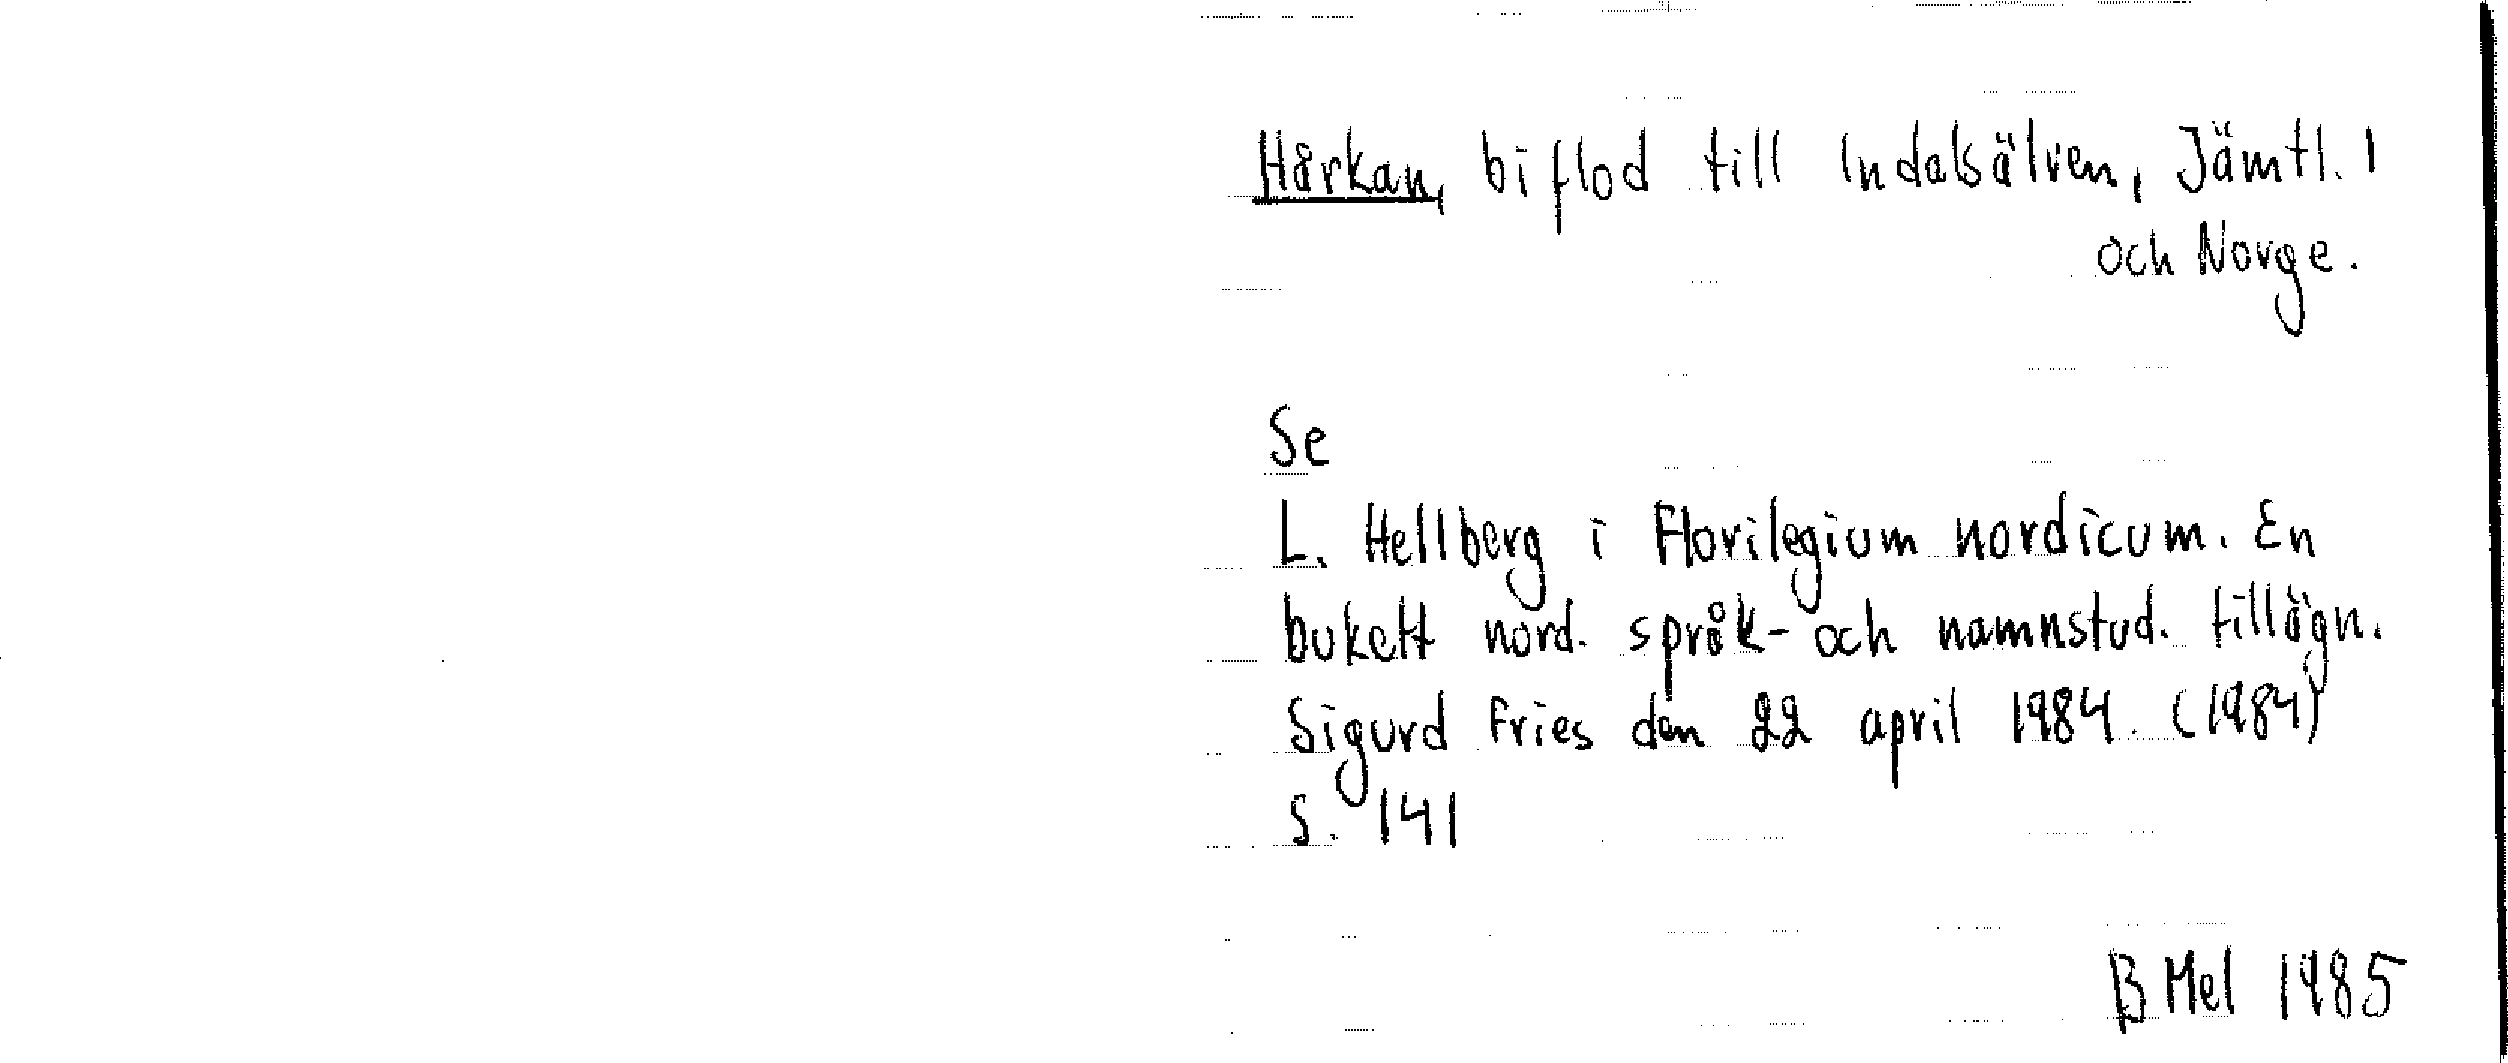 Hårkan, biflod till Indalsälven, Jämtl. l
och Norge.
Se
L. Hellberg i Florilegium nordicum. En
bukett nord. språk- och namnstud. tillägn.
Sigurd Fries den 22 april 1984. (1984)
s. 141
B Mel 1985